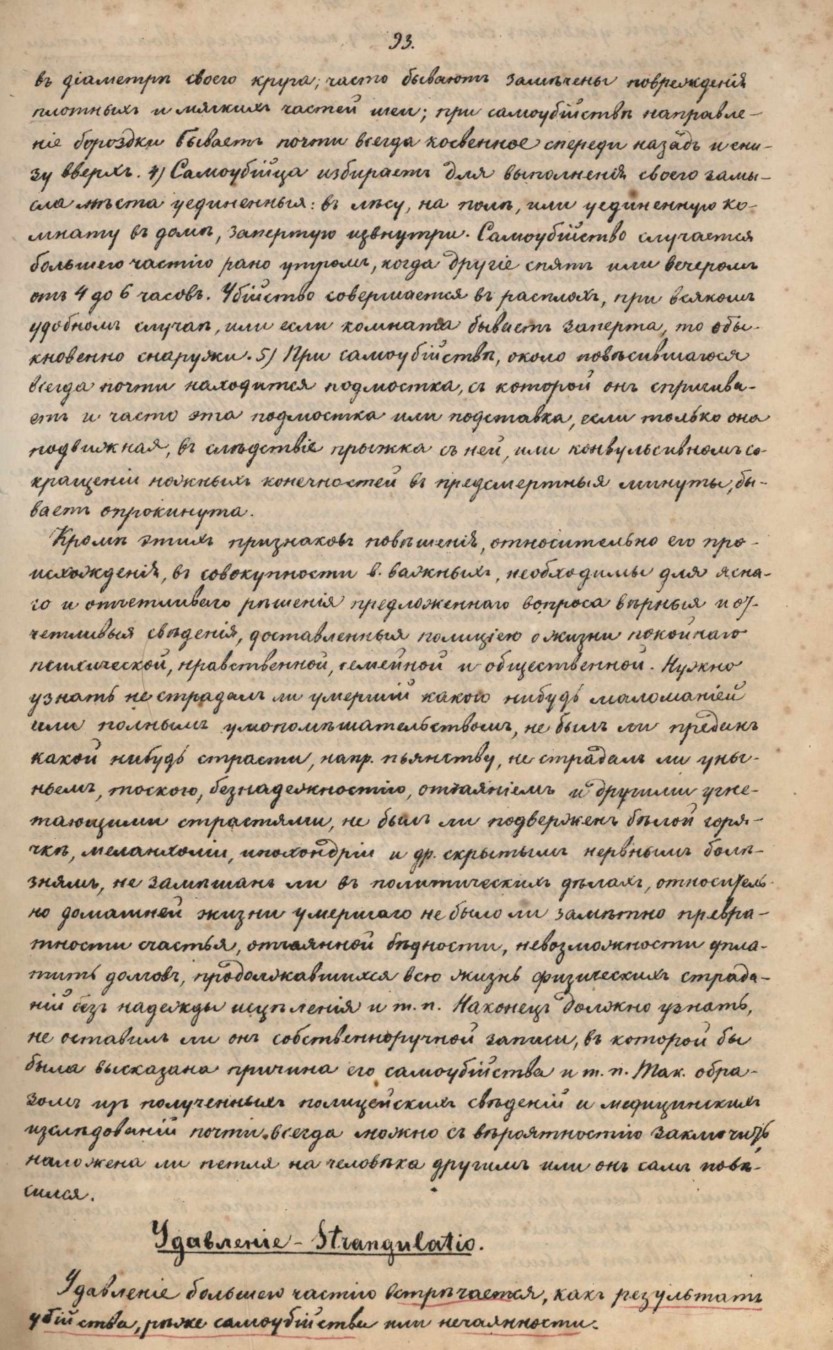 93.
въ діаметрѣ своего круга; часто бываютъ замѣчены поврежденія
плотныхъ и мягкихъ частей шеи; при самоубійствѣ направле-
ніе бороздки бываетъ почти всегда косвенное спереди назадъ и сни-
зу вверхъ. 4) Самоубійца избираетъ для выполненія своего замы-
сла мѣста уединенныя: въ лѣсу, на полѣ, или уединенную ко-
мнату въ домѣ, запертую извнутри. Самоубійство случается
большею частію рано утромъ, когда другіе спятъ или вечеромъ
отъ 4 до 6 часовъ. Убійство совершается въ расплохъ, при всякомъ
удобномъ случаѣ, или если комната бываетъ заперта, то обы-
кновенно снаружи. 5) При самоубійствѣ, около повѣсившагося
всегда почти находится подмостка, съ которой онъ спрыгива-
етъ и часто эта подмостка или подставка, если только она
подвижная, въ слѣдствіе прыжка съ ней, или конвульсивномъ со-
кращеніи ножныхъ конечностей въ предсмертныя минуты, бы-
ваетъ опрокинута.
Кромѣ этихъ признаковъ повѣшенія, относительно его про-
исхожденія, въ совокупности в. важныхъ, необходимы для ясна-
го и отчетливаго рѣшенія предложеннаго вопроса вѣрныя и от-
четливыя свѣденія, доставленныя полиціею о жизни покойнаго
психической, нравственной, семейной и общественной. Нужно
узнать не страдалъ ли умершій какою нибудь маломаніей
или полнымъ умопомѣшательствомъ, не былъ ли преданъ
какой нибудь страсти, напр. пьянству, не страдалъ ли уны-
ньемъ, тоскою, безнадежностію, отчаяніемъ и другими угне-
тающими страстями, не былъ ли подверженъ бѣлой горя-
чкѣ, меланхоліи, ипохондріи и др. скрытымъ нервнымъ болѣ-
знямъ, не замѣшанъ ли въ политическихъ дѣлахъ, относитель-
но домашней жизни умершаго не было ли замѣтно превра-
тности счастья, отчаянной бѣдности, невозможности упла-
тить долговъ, продолжавшихся всю жизнь физическихъ страда-
ній безъ надежды исцѣленія и т. п. Наконецъ должно узнать,
не оставилъ ли онъ собственноручной записи, въ которой бы
была высказана причина его самоубійства и т. п. Так. обра-
зомъ изъ полученныхъ полицейскихъ свѣденій и медицинскихъ
изслѣдованій почти всегда можно съ вѣроятностію заключить
наложена ли петля на человѣка другимъ или онъ самъ повѣ-
сился.
Удавленіе – Strangulatio.
Удавленіе большею частію встрѣчается, какъ результатъ
убійства, рѣже самоубійства или нечаянности.